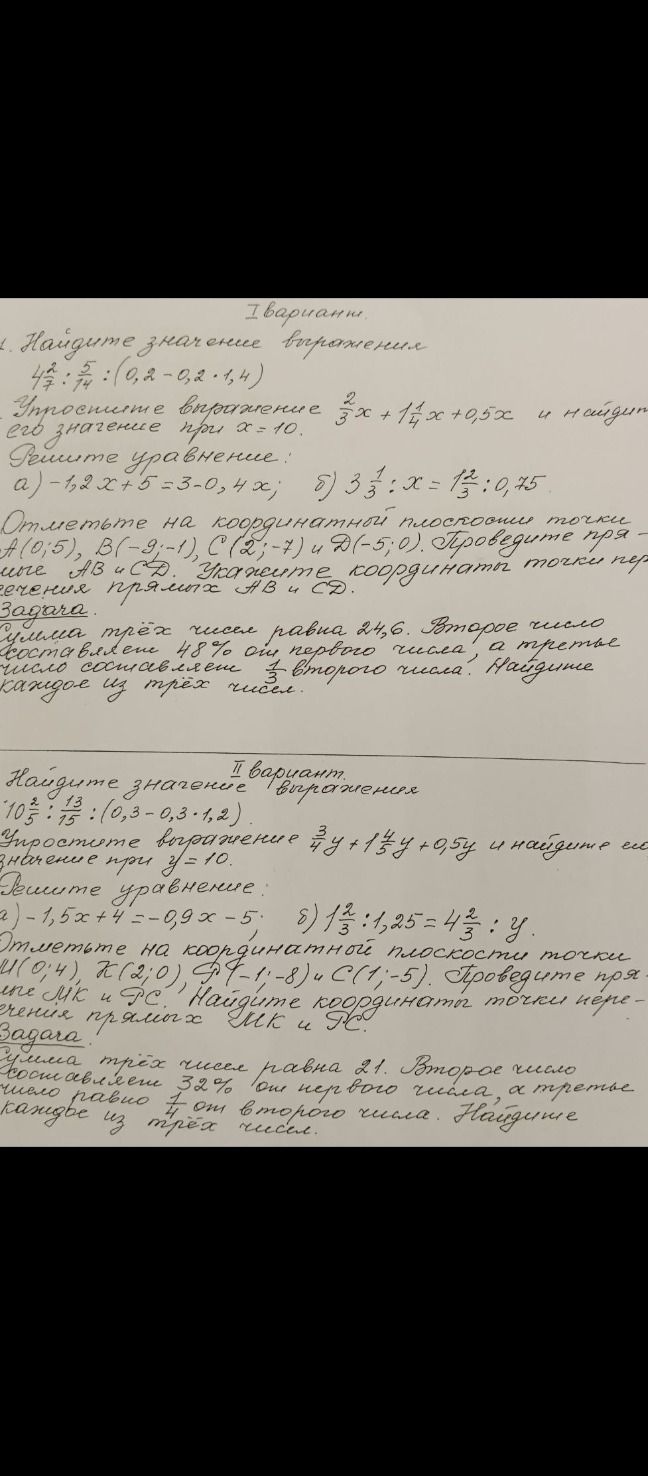 I вариант.
1. Найдите значение выражения
4 2/7 : 5/14 : (0,2 - 0,2 · 1,4)
Упростите выражение 2/3 x + 1 1/4 x + 0,5x и найдите
его значение при x = 10.
Решите уравнение:
а) -1,2x + 5 = 3 - 0,4x; б) 3 1/3 : x = 1 2/3 : 0,75
Отметьте на координатной плоскости точки
A(0;5), B(-9;-1), C(2;-7) и D(-5;0). Проведите пря-
мые AB и CD. Укажите координаты точки пер
ечения прямых AB и CD.
Задача.
Сумма трёх чисел равна 24,6. Второе число
составляет 48% от первого числа, а третье
число составляет 1/3 второго числа. Найдите
каждое из трёх чисел.
II вариант.
Найдите значение выражения
10 2/5 : 13/15 : (0,3 - 0,3 · 1,2)
Упростите выражение 3/4 y + 1 4/5 y + 0,5y и найдите его
значение при y = 10.
Решите уравнение:
а) -1,5x + 4 = -0,9x - 5; б) 1 2/3 : 1,25 = 4 2/3 : y.
Отметьте на координатной плоскости точки
М(0;4), К(2;0), Р(-1;-8) и С(1;-5). Проведите пря-
мые МК и РС. Найдите координаты точки пере-
ечения прямых МК и РС.
Задача.
Сумма трёх чисел равна 21. Второе число
составляет 32% от первого числа, а третье
число равно 1/4 от второго числа. Найдите
каждое из трёх чисел.